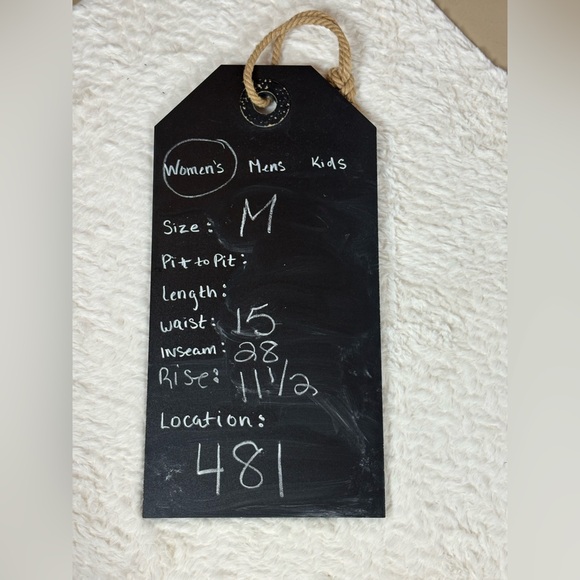 Women's Mens Kids
Size: M
Pit to Pit:
Length:
Waist: 15
Inseam: 28
Rise: 11 1/2
Location:
481